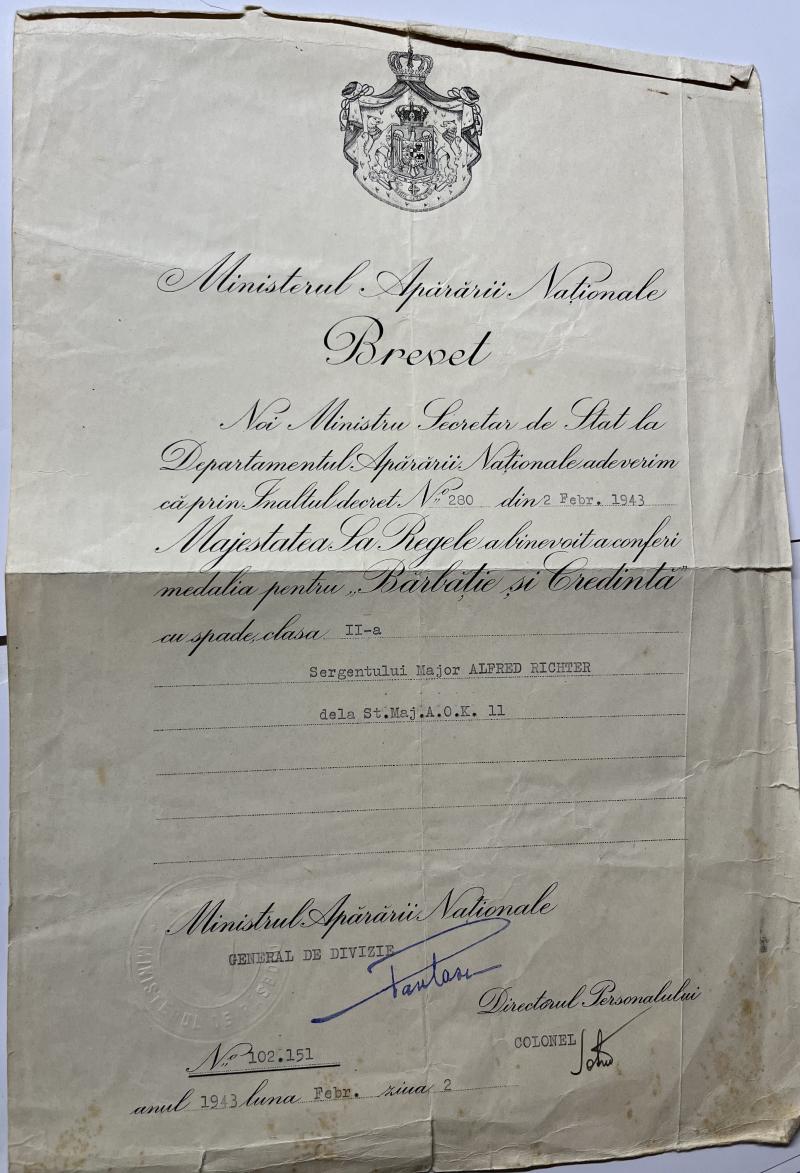 Ministerul Apărării Naţionale
Brevet
Noi Ministru Secretar de Stat la
Departamentul Apărării Naţionale adeverim
că prin Inaltul decret No 280 din 2 Febr. 1943
Majestatea Sa Regele a binevoit a conferi
medalia pentru „Bărbăţie şi Credintă”
cu spade, clasa II-a
Sergentului Major ALFRED RICHTER
dela St.Maj.A.O.K. 11
Ministrul Apărării Naţionale
GENERAL DE DIVIZIE
Directorul Personalului
COLONEL
No 102.151
anul 1943 luna Febr. ziua 2